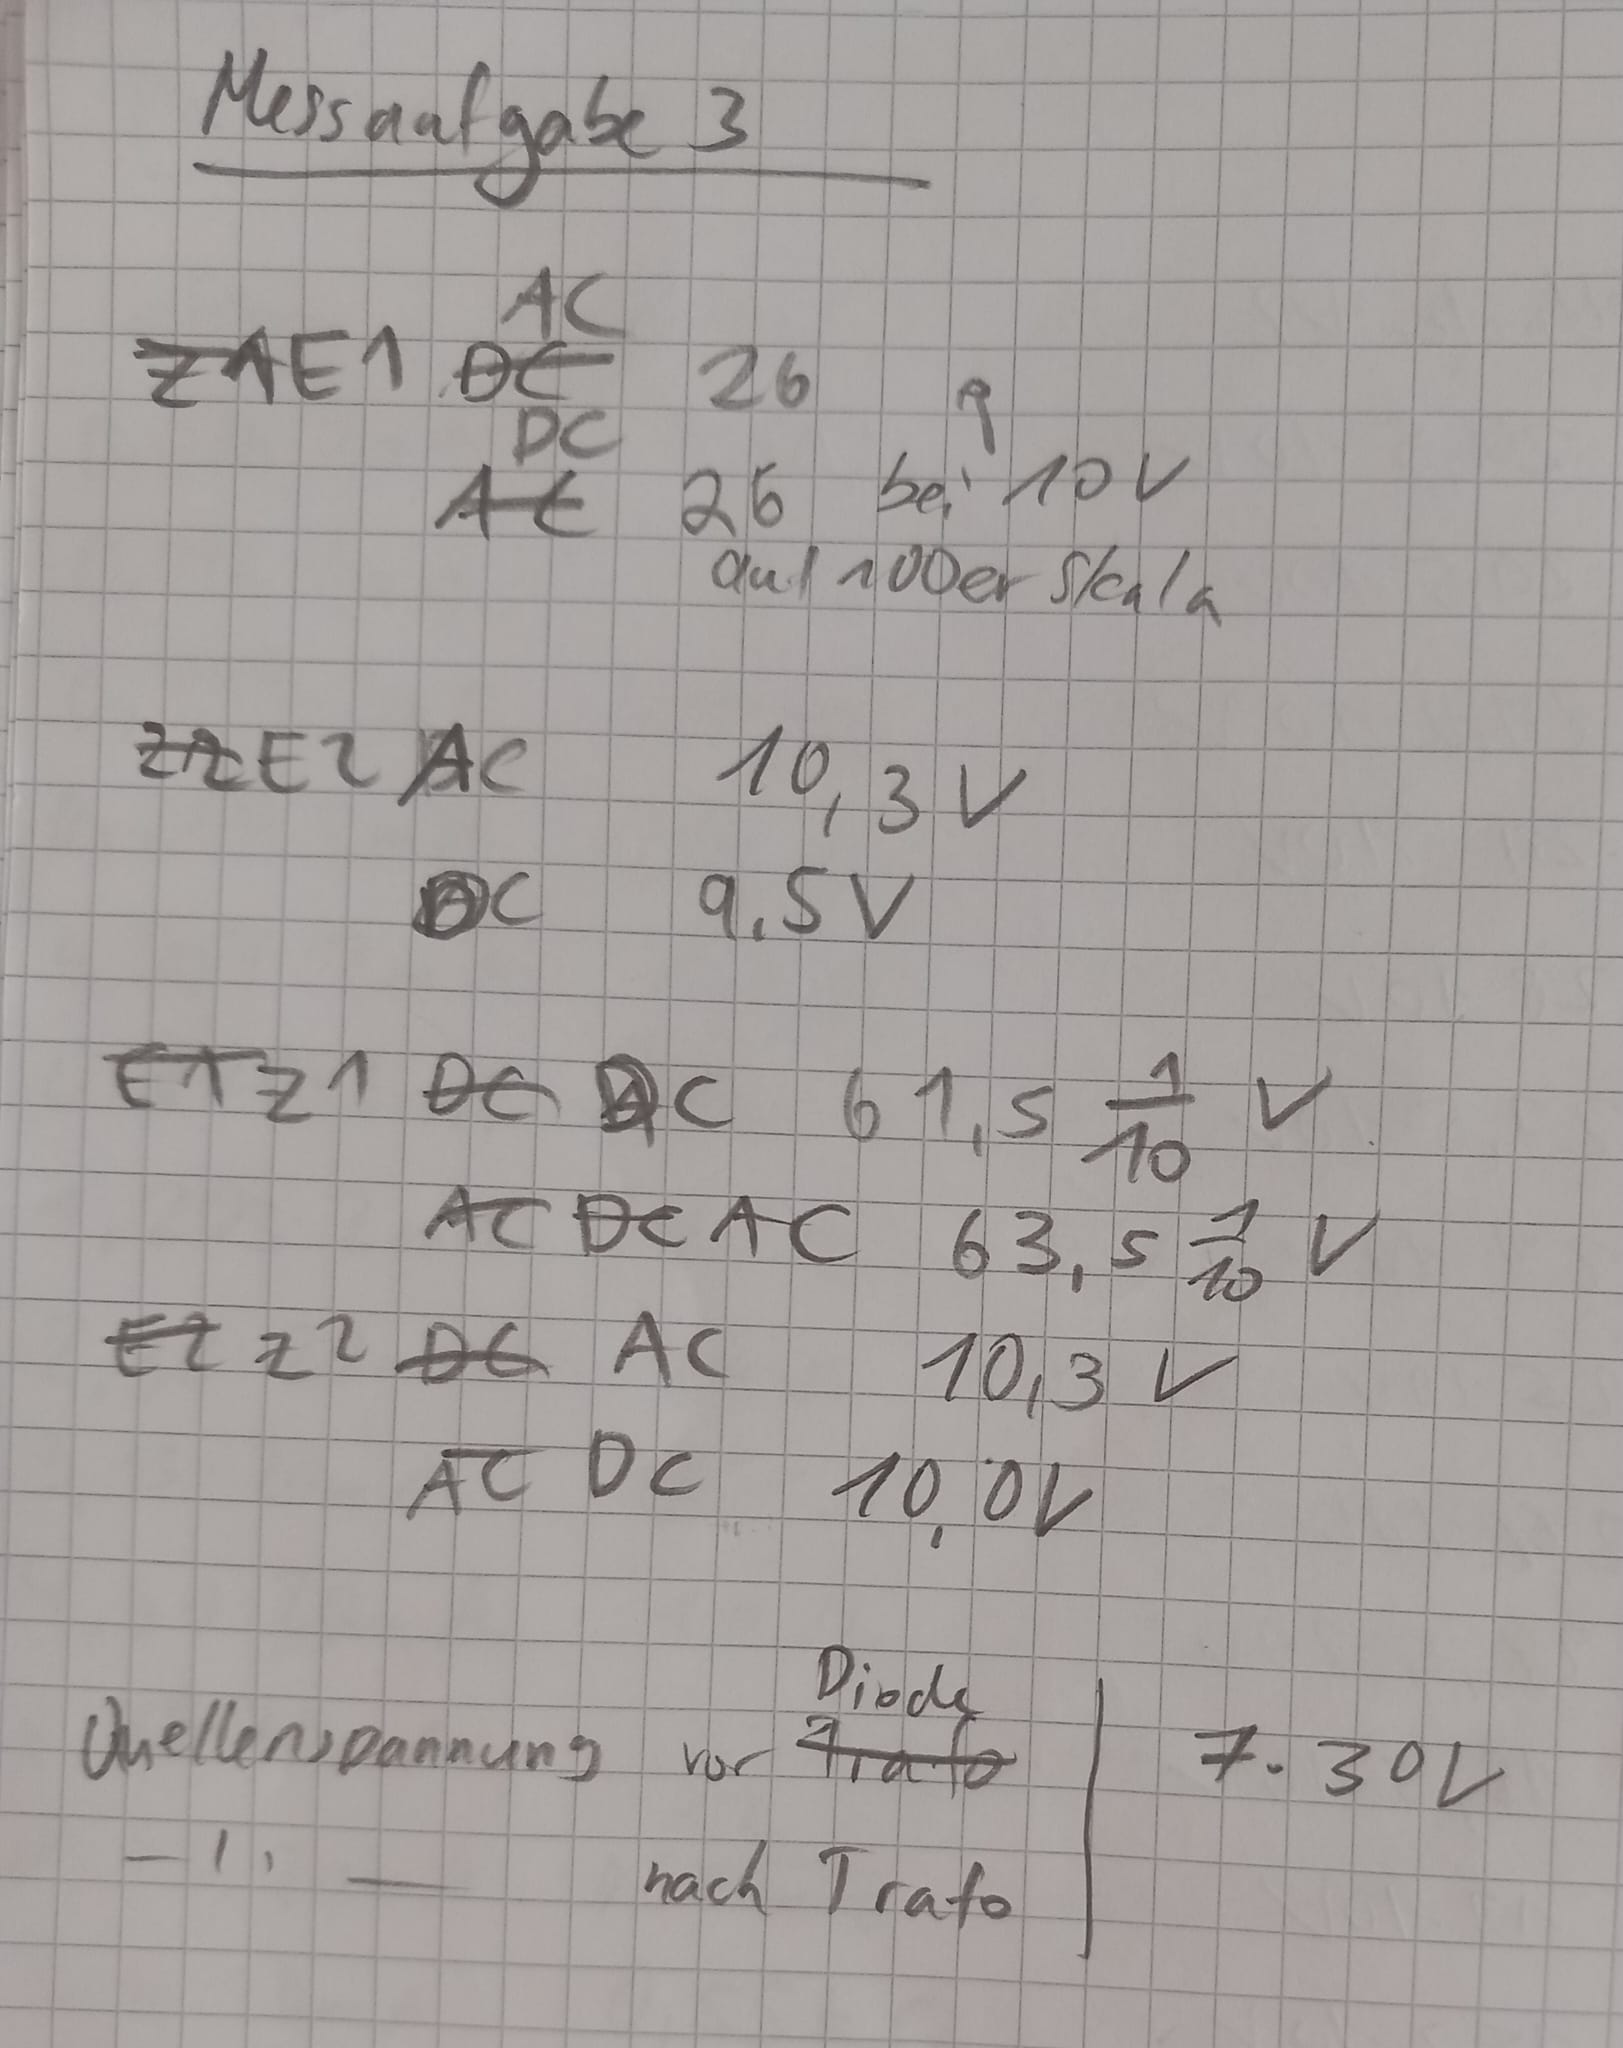 Messaufgabe 3
AC
Z1 E1 DC 26 9
DC
AC 26 bei 10V
auf 100er Skala
Z2 E2 AC 10,3 V
DC 9.5V
E1 Z1 DC DC 61,5 1/10 V
AC DC AC 63,5 1/10 V
E2 Z2 DC AC 10,3 V
AC DC 10,0V
Diode
Quellenspannung vor Trafo 7.30V
—"— nach Trafo